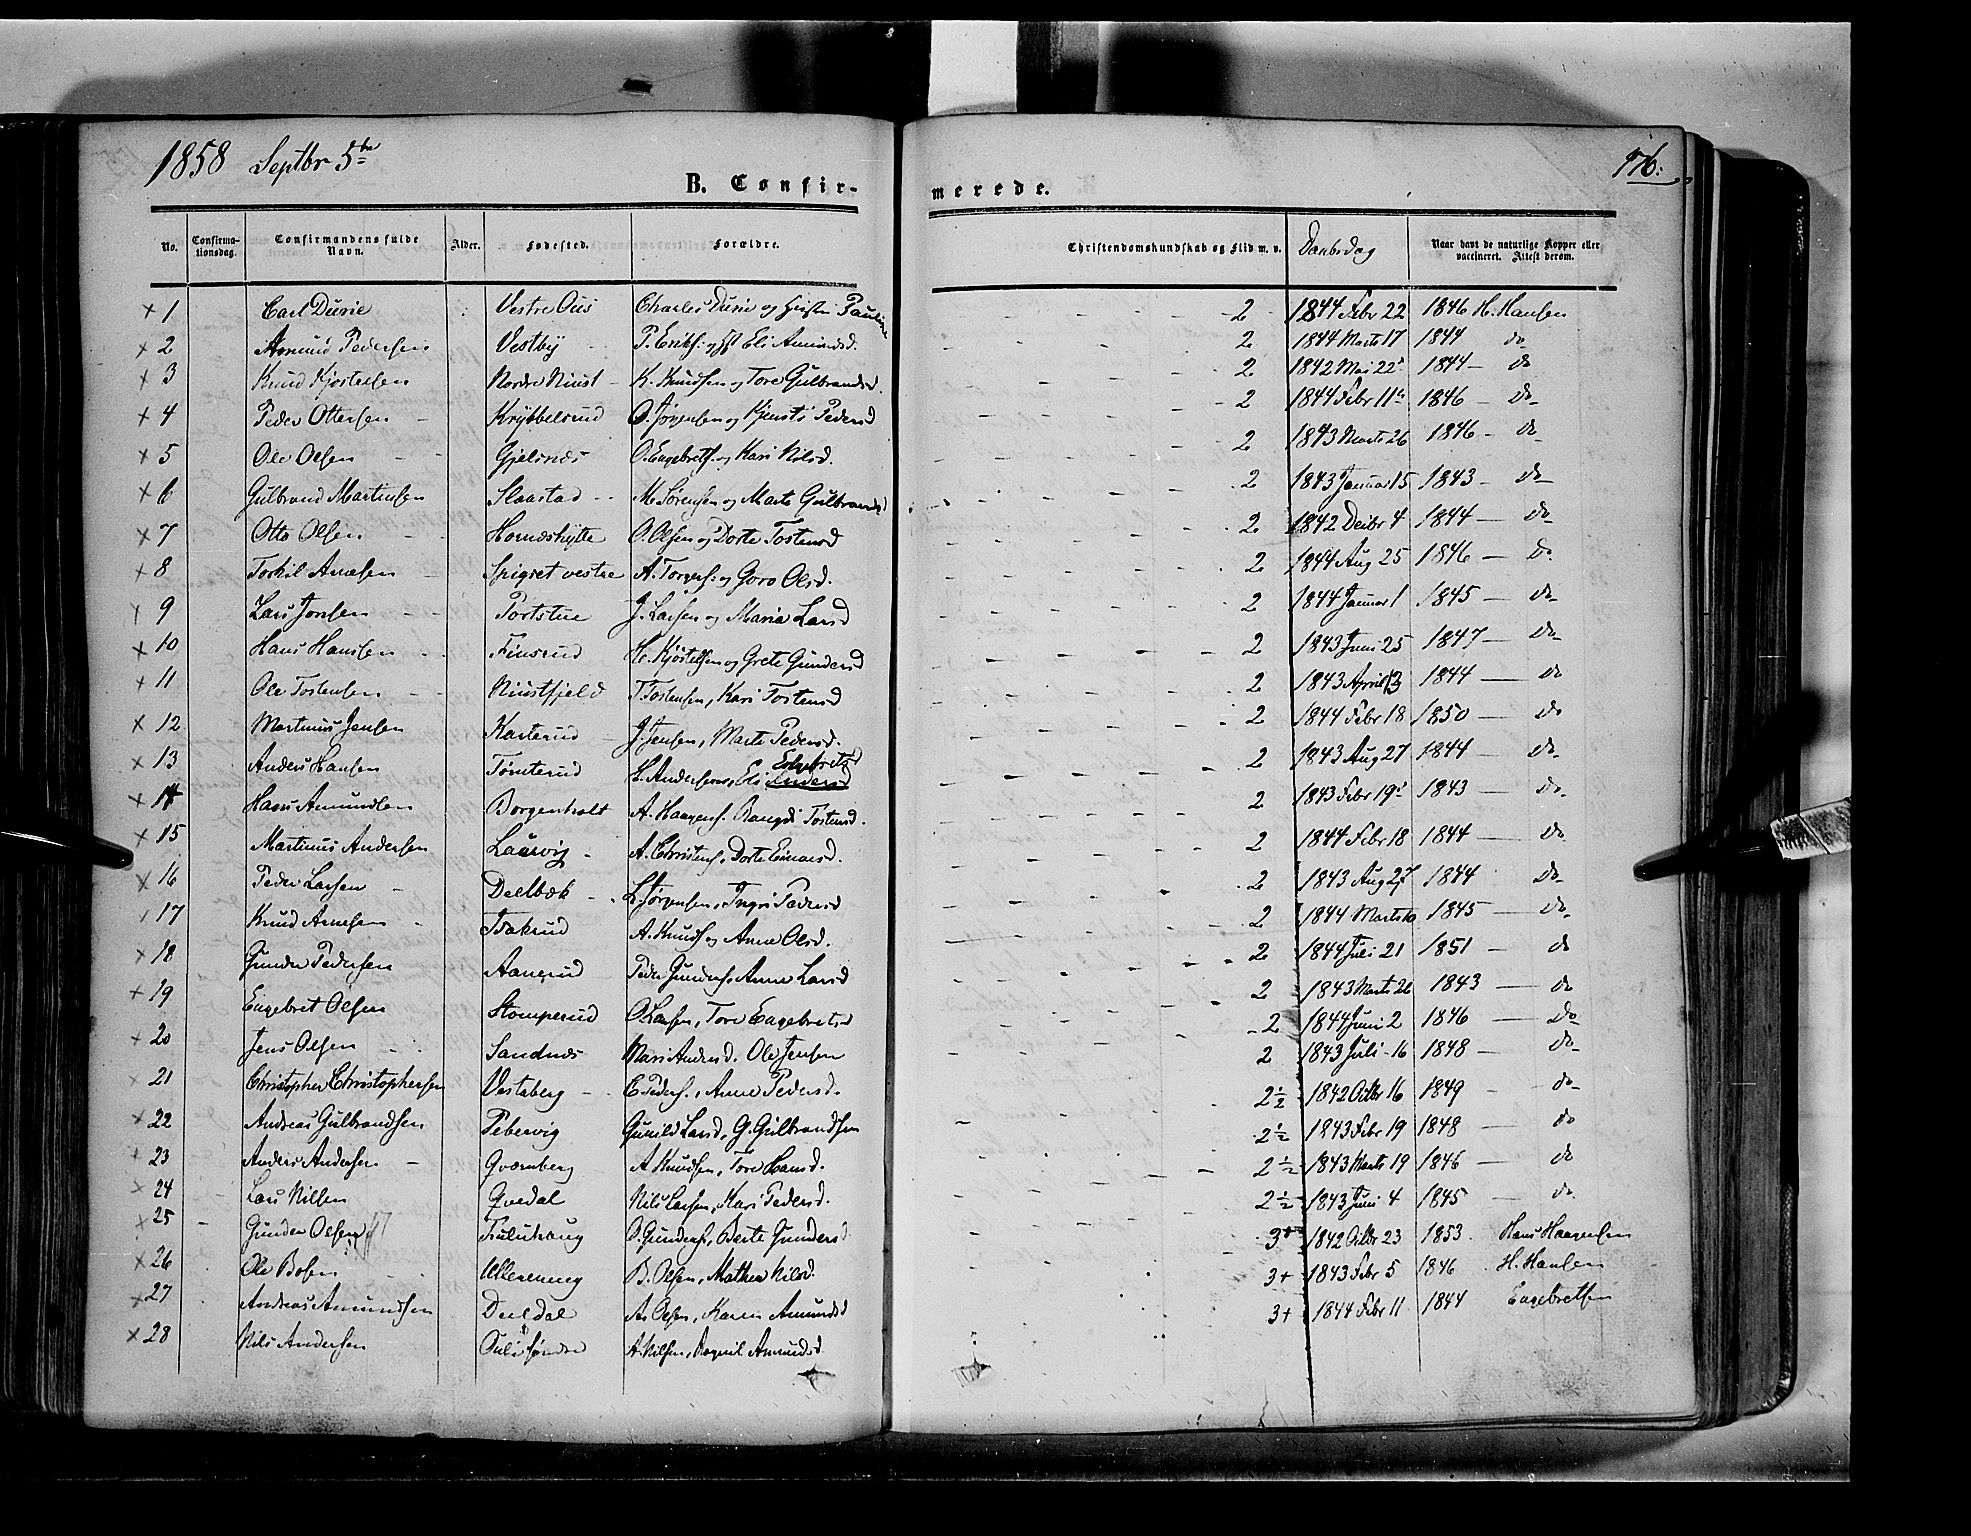 1858 Septbr 5te
176.
B. Confirmerede.
No. Confirmationsdag. Confirmandens fulde Navn. Alder. Fødested. Forældre. Christendomskundskab og Flid m. v. Daabsdag Naar havt de naturlige Kopper eller vaccineret. Attest derom.
x 1 Carl Durie Vestre Ous Charles Durie og Pauline 2 1844 Febr 22 1846 H. Hansen
x 2 Asmund Pedersen Vestby P. Eriks. og Eli Amundsd. 2 1844 Marts 17 1844 do
x 3 Knud Kjostelsen Nordre Niust K. Knudsen og Tore Gulbrandsd. 2 1842 Mai 22 1844 - do
x 4 Peder Ottersen Krybbelsrud O. Jørgensen og Kjersti Pedersd 2 1844 Febr 11 1846 - Do
x 5 Ole Olsen Gjelsnes O. Engebrets. og Kari Nilsd. 2 1843 Marts 26 1846 - do
x 6 Gulbrand Martinsen Slaastad M. Sørensen og Marte Gulbrandsd 2 1843 Januar 15 1843 - do
x 7 Otto Olsen Hornæshytte O. Olsen og Dorte Tostensd 2 1842 Decbr 4 1844 - do
x 8 Torkil Arnesen Spigset vestre A. Torgers. og Goro Olsd. 2 1844 Aug 25 1846 - Do
9 Lars Jonsen Portstue J. Larsen og Maria Larsd 2 1844 Januar 1 1845 - do
x 10 Hans Hansen Finsrud H. Kjøstelsen og Grete Gundersd 2 1843 Juni 25 1847 - Do
x 11 Ole Tostensen Niustfjeld T. Tostensen, Kari Tostensd 2 1843 April 13 1844 - do
x 12 Martinus Jensen Karterud J. Jensen, Marte Pedersd. 2 1844 Febr 18 1850 - do
x 13 Anders Hansen Tømterud H. Andersen, Eli Andersd 2 1843 Aug 27 1844 - do
x 14 Hans Amundsen Borgenholt A. Haagens. Rangdi Tostensd. 2 1843 Febr 19 1843 - do
x 15 Martinus Andersen Laarvig A. Christens. Dorte Einarsd. 2 1844 Febr 18 1844 - do
x 16 Peder Larsen Deelbæk L. Jørgensen, Ingri Pedersd 2 1843 Aug 27 1844 do
17 Knud Arnesen A. Knuds og Anne Olsd. 2 1844 Marts 10 1845 - do
x 18 Gunder Pedersen Aanerud Peder Gunders. Anne Larsd 2 1844 Juli 21 1851 - do
x 19 Engebret Olsen Stomperud O. Larsen, Tore Engebretsd 2 1843 Marts 26 1843 - do
x 20 Jens Olsen Sandnæs Mari Andersd. Ole Jensen 2 1844 Juni 2 1846 - do
21 Christopher Christophersen Vestaberg C. Peders., Anne Pedersd. 2 1843 Juli 16 1848 - do
x 22 Andreas Gulbrandsen Pebervig Gunild Larsd, G. Gulbrandsen 2½ 1842 Octbr 16 1849 - do
23 Anders Andersen Qværnberg A. Knudsen, Tore Hansd. 2½ 1843 Febr 19 1848 - do
x 24 Lars Nilsen Qvedal Nils Larsen, Kari Pedersd. 2½ 1843 Marts 19 1846 - do
x 25 Gunder Olsen O. Gunders., Berte Gundersd. 2½ 1843 Juni 4 1845 - do
x 26 Ole Bosen Ullereneng B. Olsen, Mathea Nilsd. 3+ 1842 Octbr 23 1853. Hans Haagensen
x 27 Andreas Amundsen Deildal A. Olsen, Karen Amundsd 3+ 1843 Febr 5 1846 H. Hansen
x 28 Nils Andersen Ouli søndre A. Nilsen, Ragnil Amundsd. 3+ 1844 Febr 11 1844 Engebretsen